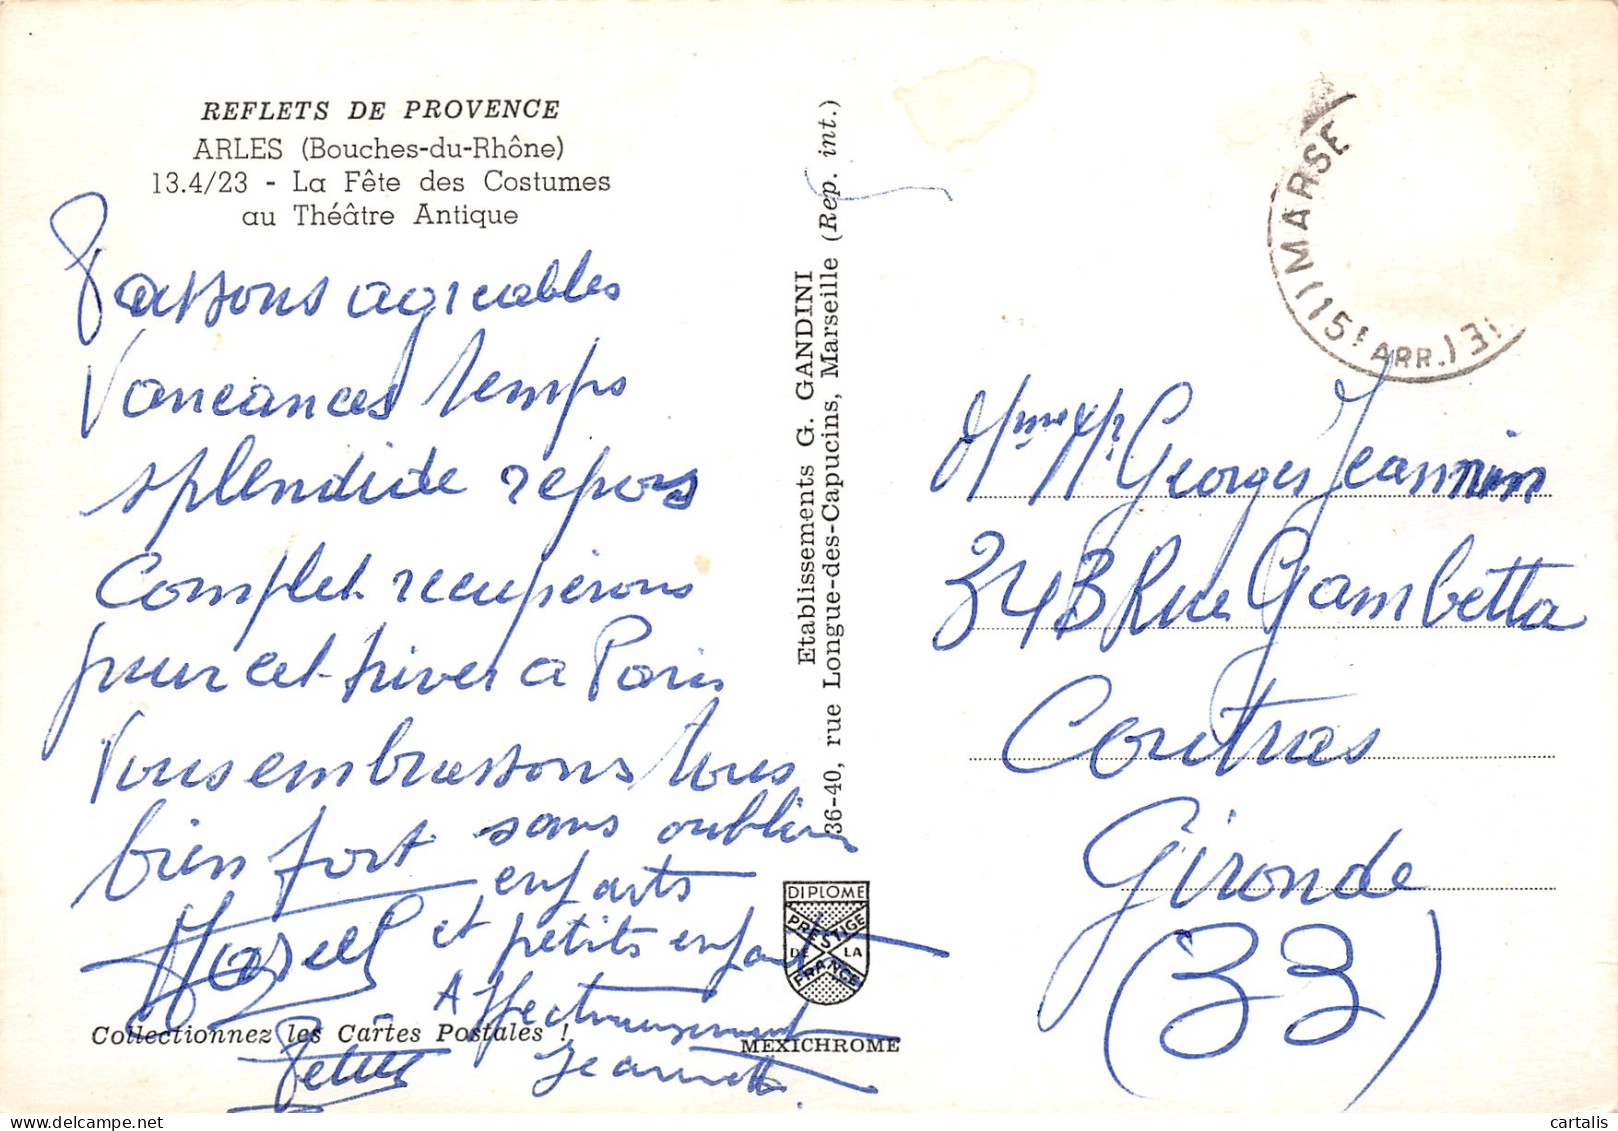 REFLETS DE PROVENCE
ARLES (Bouches-du-Rhône)
13.4/23 - La Fête des Costumes
au Théâtre Antique
Passons agreables
Vancances temps
splendide repos
Complet recuperons
pour cet hiver a Paris
Vous embrassons tous
bien fort sans oublier
enfants
Marcel et petits enfants
Affectueusement
Jeannette
Collectionnez les Cartes Postales !
Etablissements G. GANDINI
36-40, rue Longue-des-Capucins, Marseille (Rep. int.)
DIPLOME
PRESTIGE
DE LA
FRANCE
MEXICHROME
MARSE
(15E ARR.)
Mme Mr Georges Jeannin
343 Rue Gambetta
Coutras
Gironde
(33)
cartalis